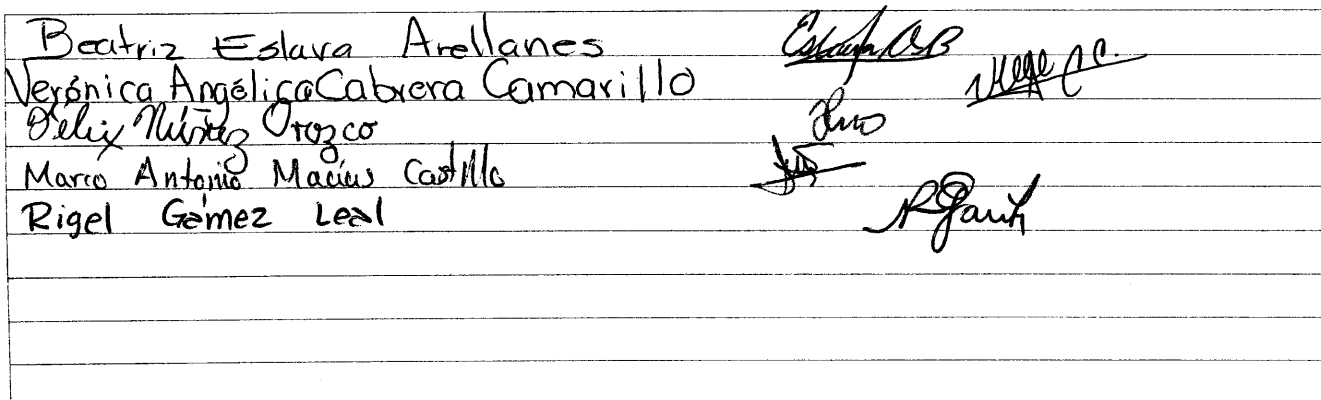 Beatriz Eslava Arellanes
Verónica Angélica Cabrera Camarillo
Félix Núñez Orozco
Marco Antonio Macías Castillo
Rigel Gámez Leal